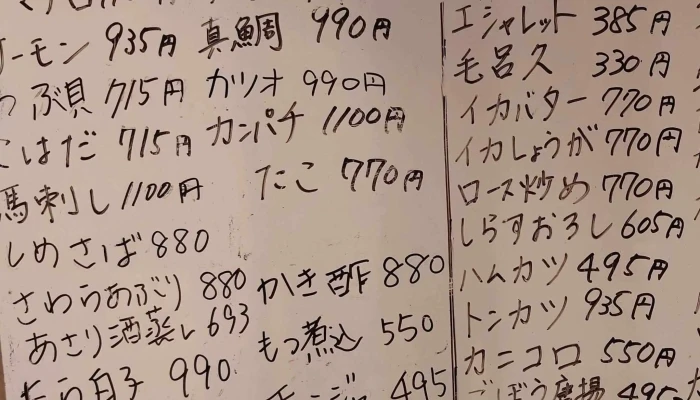 ーモン 935円
ぶ貝 715円
こはだ 715円
馬刺し 1100円
しめさば 880
さわらあぶり 880
あさり酒蒸し 693
たら白子 990
真鯛 990円
カツオ 990円
カンパチ 1100円
たこ 770円
かき酢 880
もつ煮込 550
495
エシャレット 385円
毛呂久 330円
イカバター 770円
イカしょうが 770円
ロース炒め 770円
しらすおろし 605円
ハムカツ 495円
トンカツ 935円
カニコロ 550円
ごぼう唐揚 495